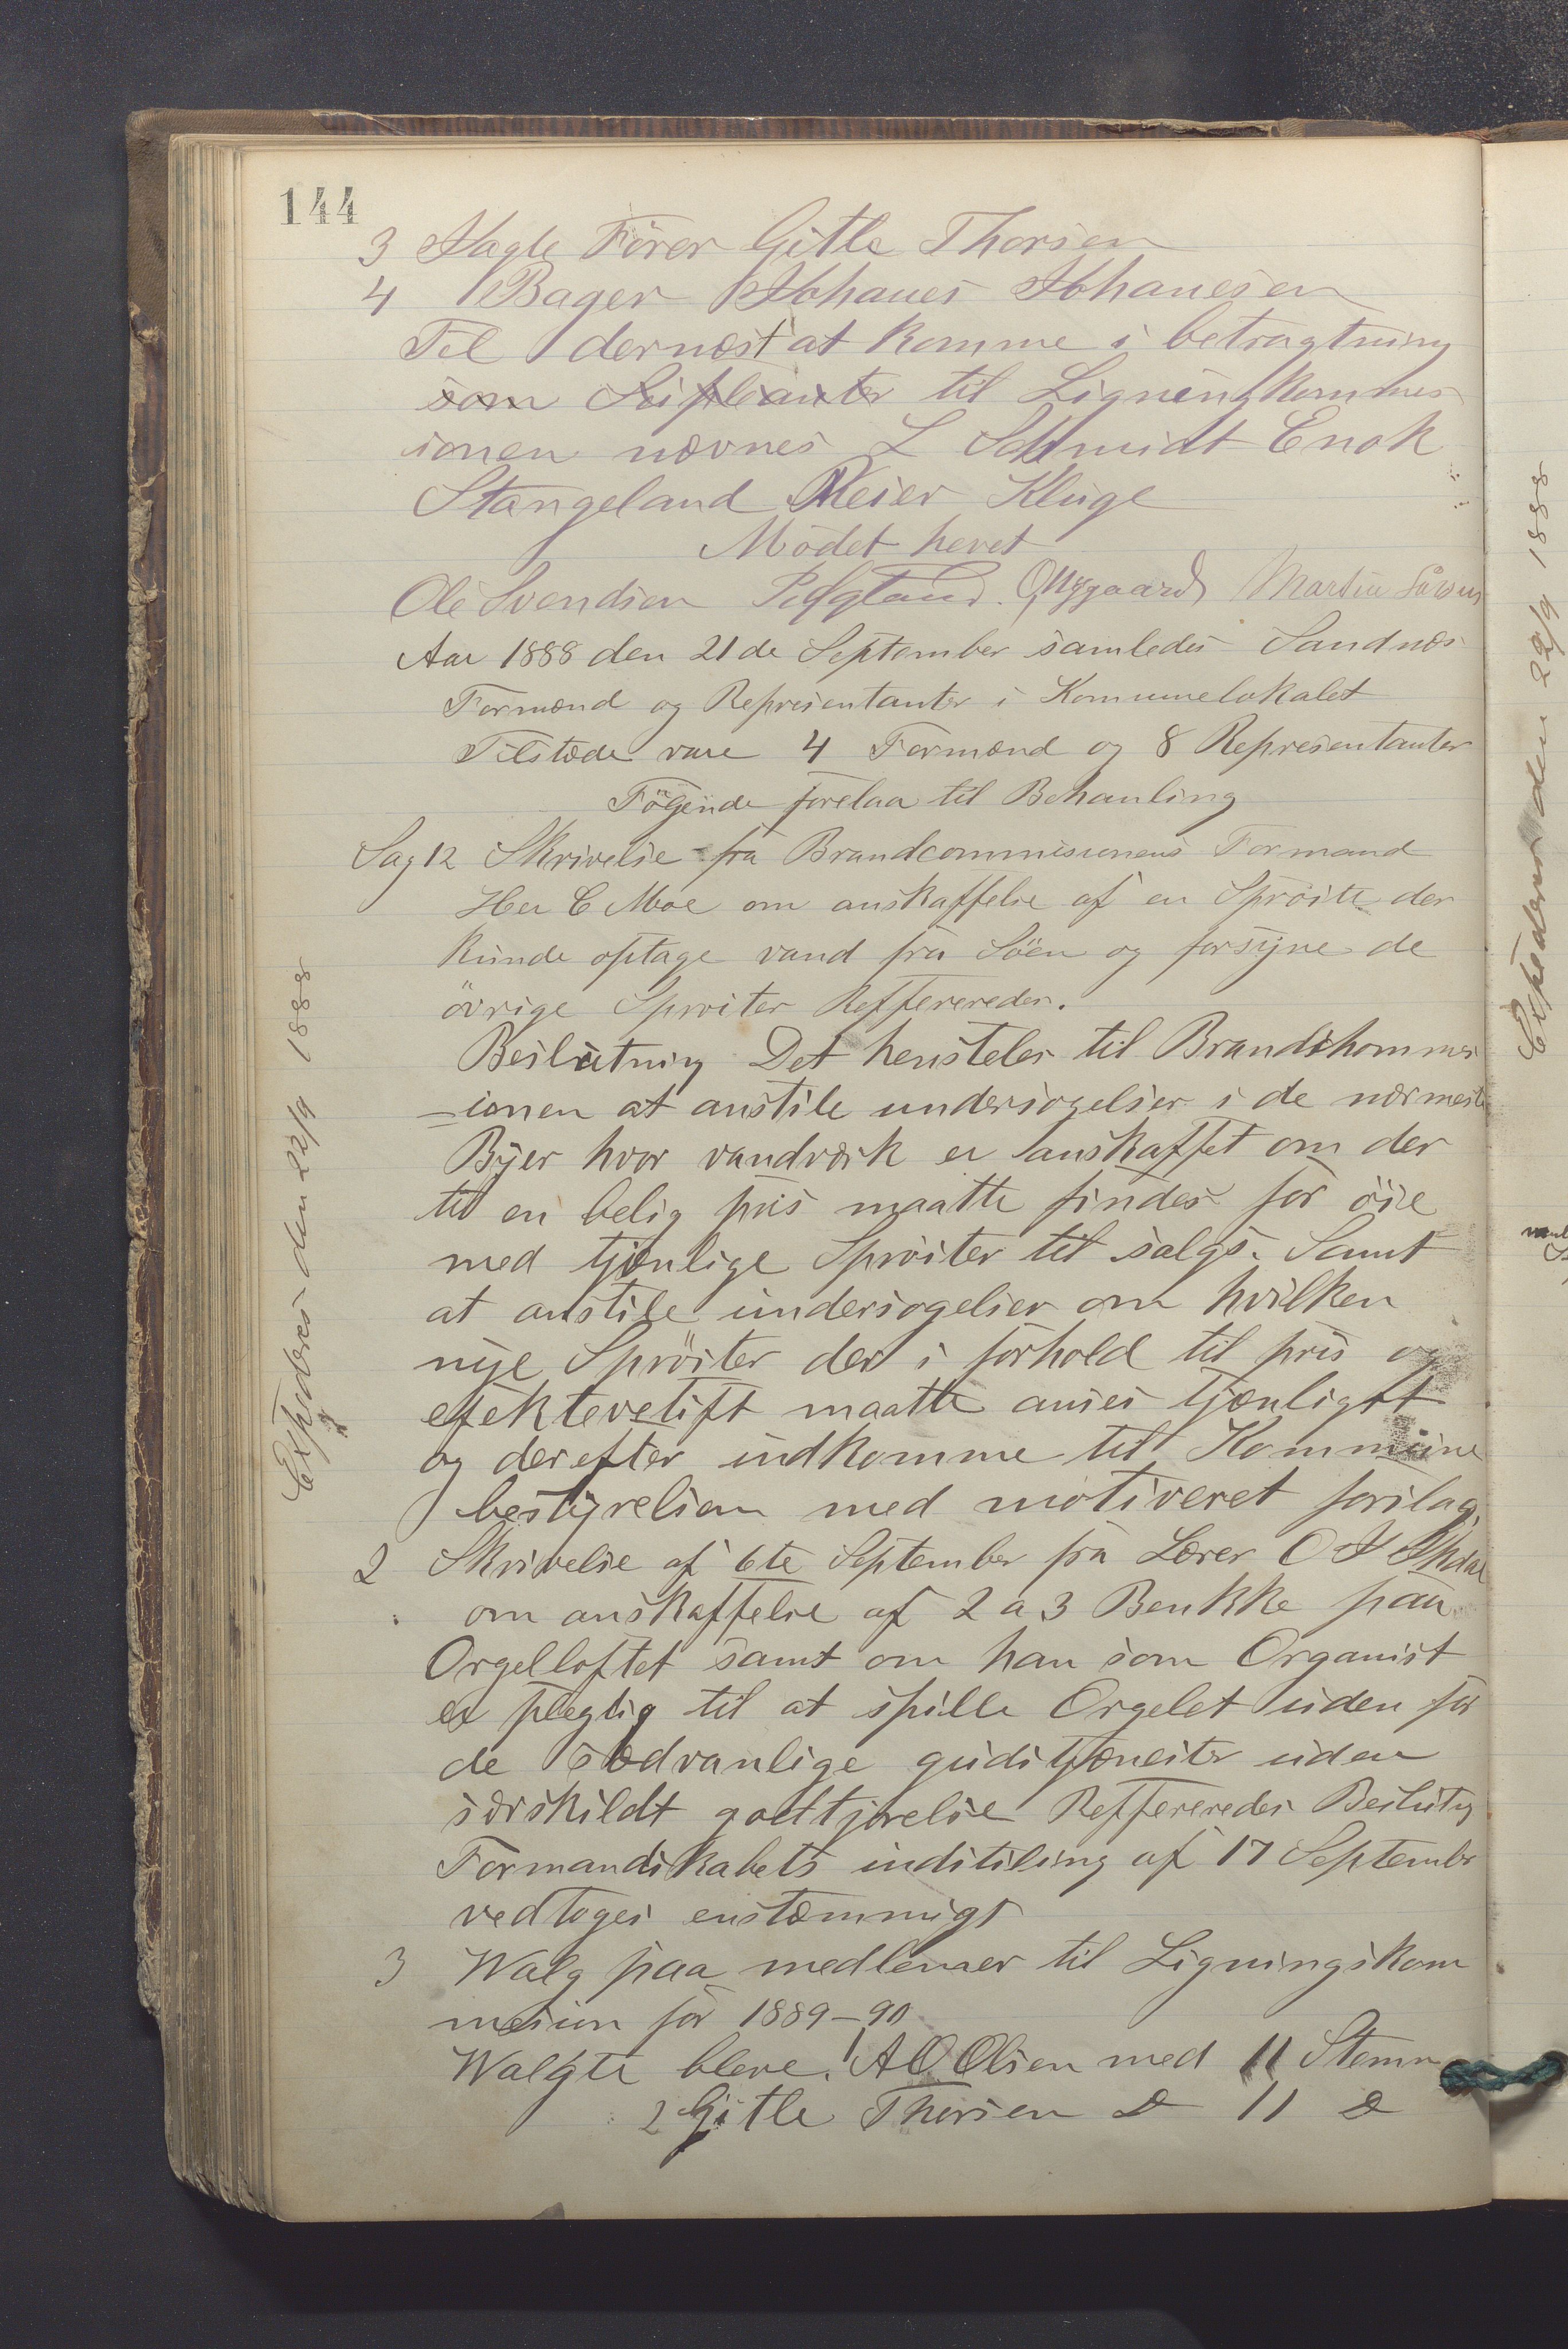 144
3 Jagle Fører Gitle Thorsen
4 Bager Johanes Johanesen
Til dernæst at komme i betragtning
som Supleanter til Ligningskommis
ionen nævnes L Schmidt Enok
Stangeland Meier Kluge
Mödet hevet
Ole Svendsen O Nygaard Martin
Aar 1888 den 21de September samledes Sandnæs
Formænd og Represientanter i Kommunelokalet
Tilstæde vare 4 Formænd og 8 Representanter
Fögende forelaa til Behanling
Sag 12 Skrivelse fra Brandcommisionens Formand
Her C Moe om anskaffelse af en Spröite der
kunde optage vand fra Söen og forsyne de
övrige Spröiter Reffereredes.
Beslutning Det hensteles til Brandskommis
-ionen at anstile undersøgelser i de nærmeste
Byer hvor vandværk er anskaffet om der
til en belig pris maatte findes for öie
med tjenlige Spröiter til salgs. Samt
at anstile undersøgelser om hvilken
nye Spröiter der i forhold til pris og
efektevetift maatte anses tjænligst
og derefter indkomme til Kommune
bestyrelsen med motiveret forslag.
2 Skrivelse af 6te September fra Lærer O J
om anskaffelse af 2 a 3 Benkke paa
Orgelloftet samt om han som Organist
er plegtig til at spille Orgelet uden for
de sædvanlige gudstjænester uden
særskildt godtjørelse Reffereredes Beslutng
Formandskabets indstiling af 17 Septembr
vedtoges enstæmmigt
3 Walg paa medlemer til Ligningskom
mesion for 1889-90
Walgte bleve. 1 A O Olsen med 11 Stemr
2 Gitle Thorsen D 11 D
Expederes den 22/9 1888
Expederes den 22/9 1888